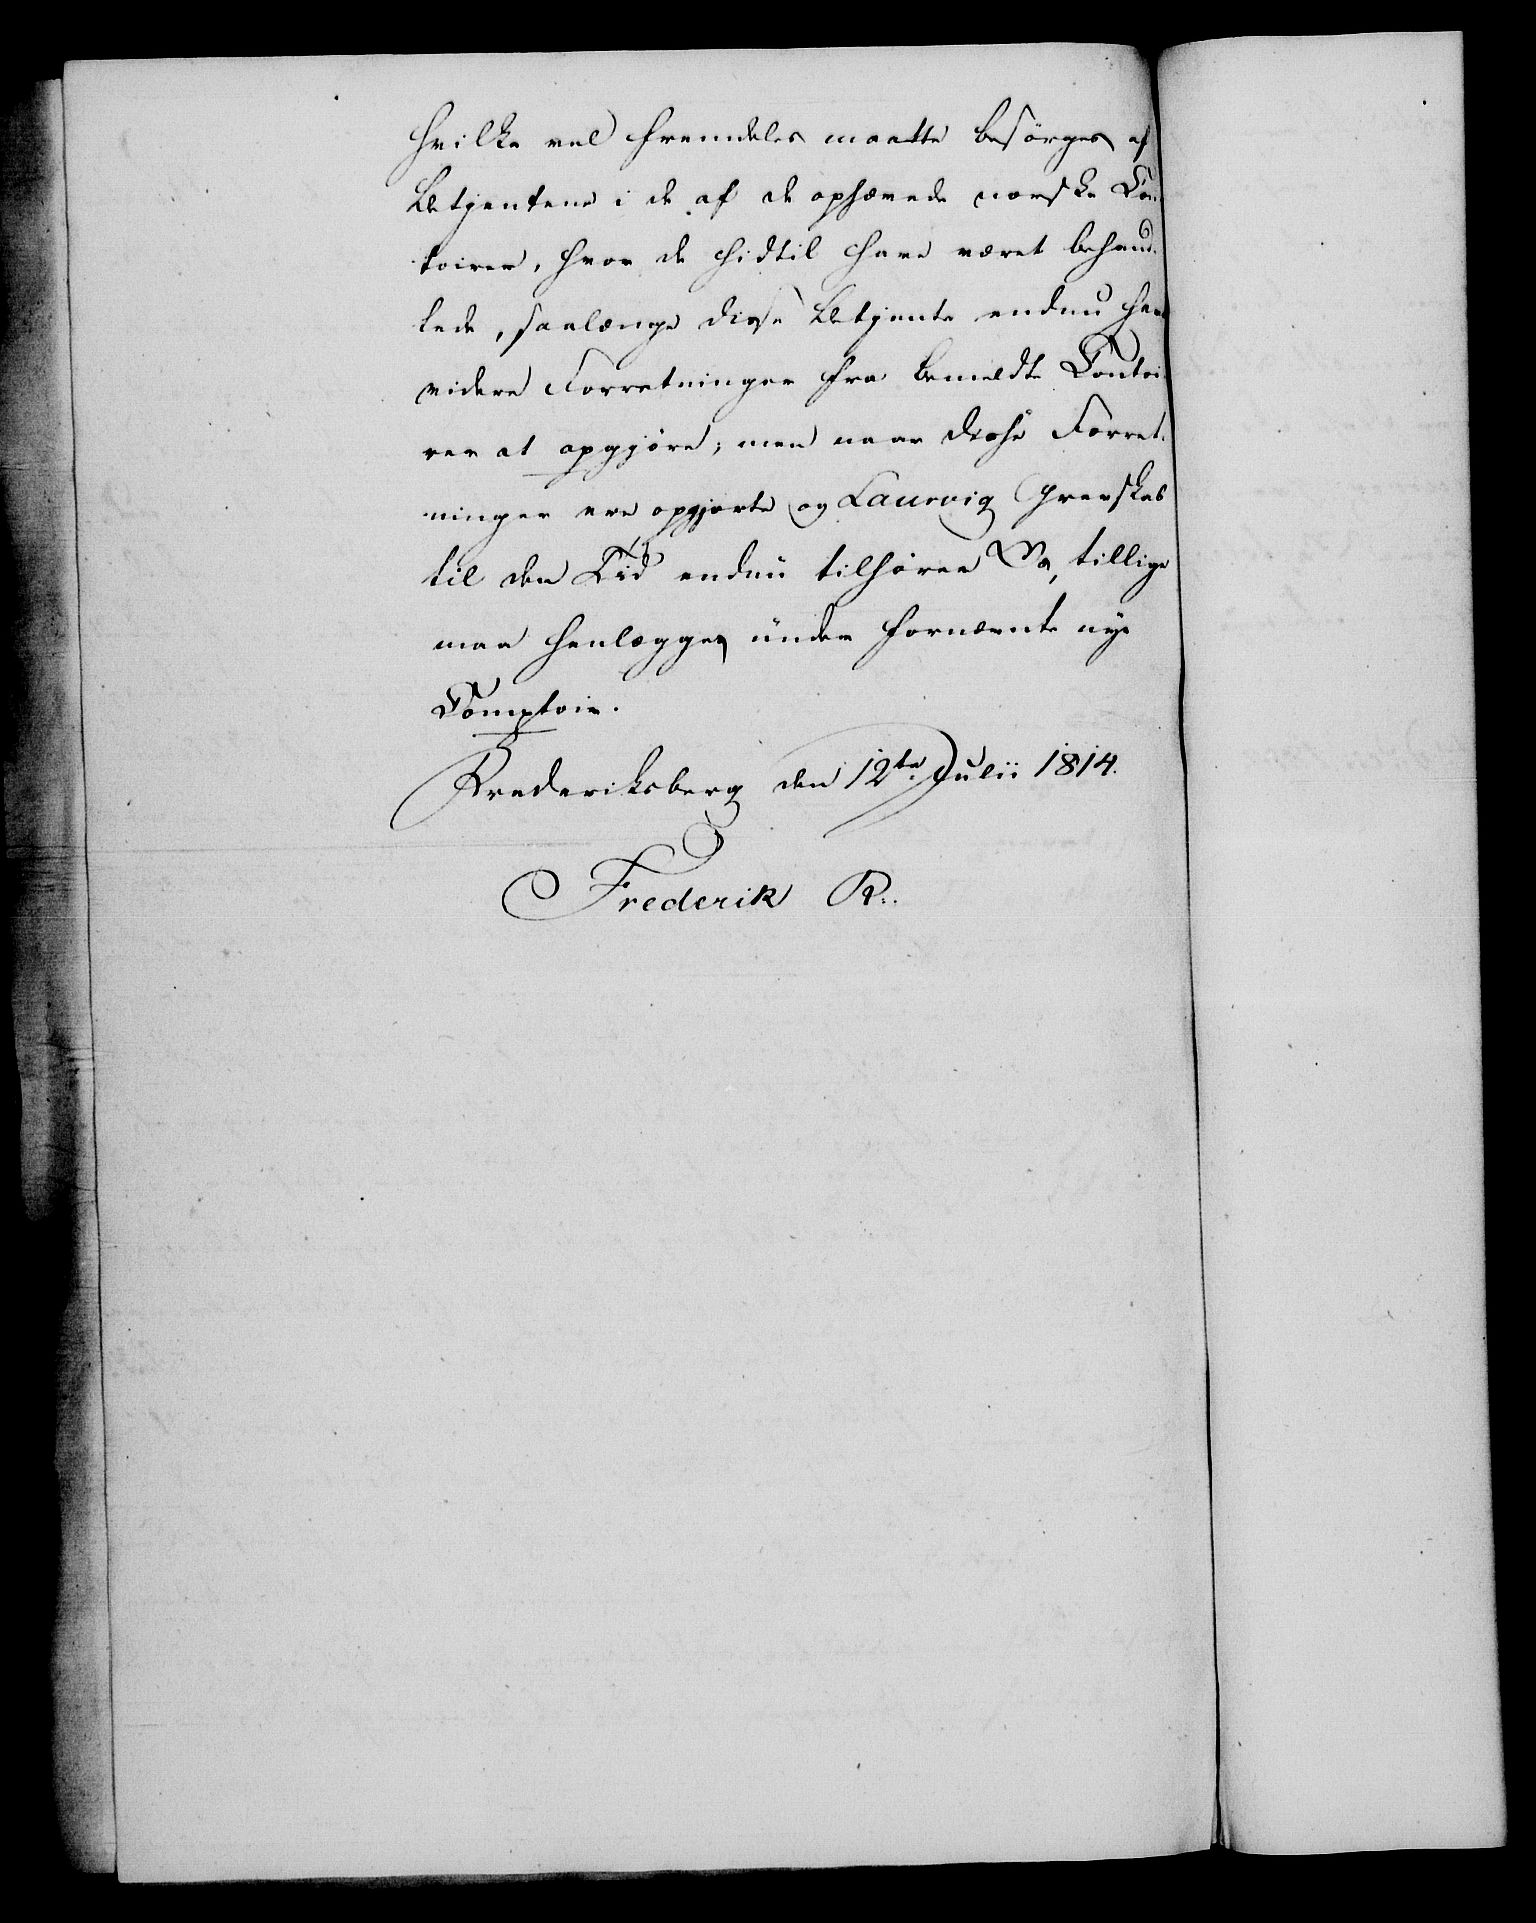 hvilke vel fremdeles maatte besørges af
Betjentene i de af de ophævede norske Con-
toirer, hvor de hidtil have været behand-
lede, saalænge disse Betjente endnu have
videre Forretninger fra bemeldte Contoi-
rer at opgjøre; men naar disse Forret-
ninger ere opgjorte og Laurvig Grevskab
til den Tid endnu tilhører Os, tillige
maa henlægges under fornævnte nye
Comptoir.
Frederiksberg den 12te Julii 1814.
Frederik R.